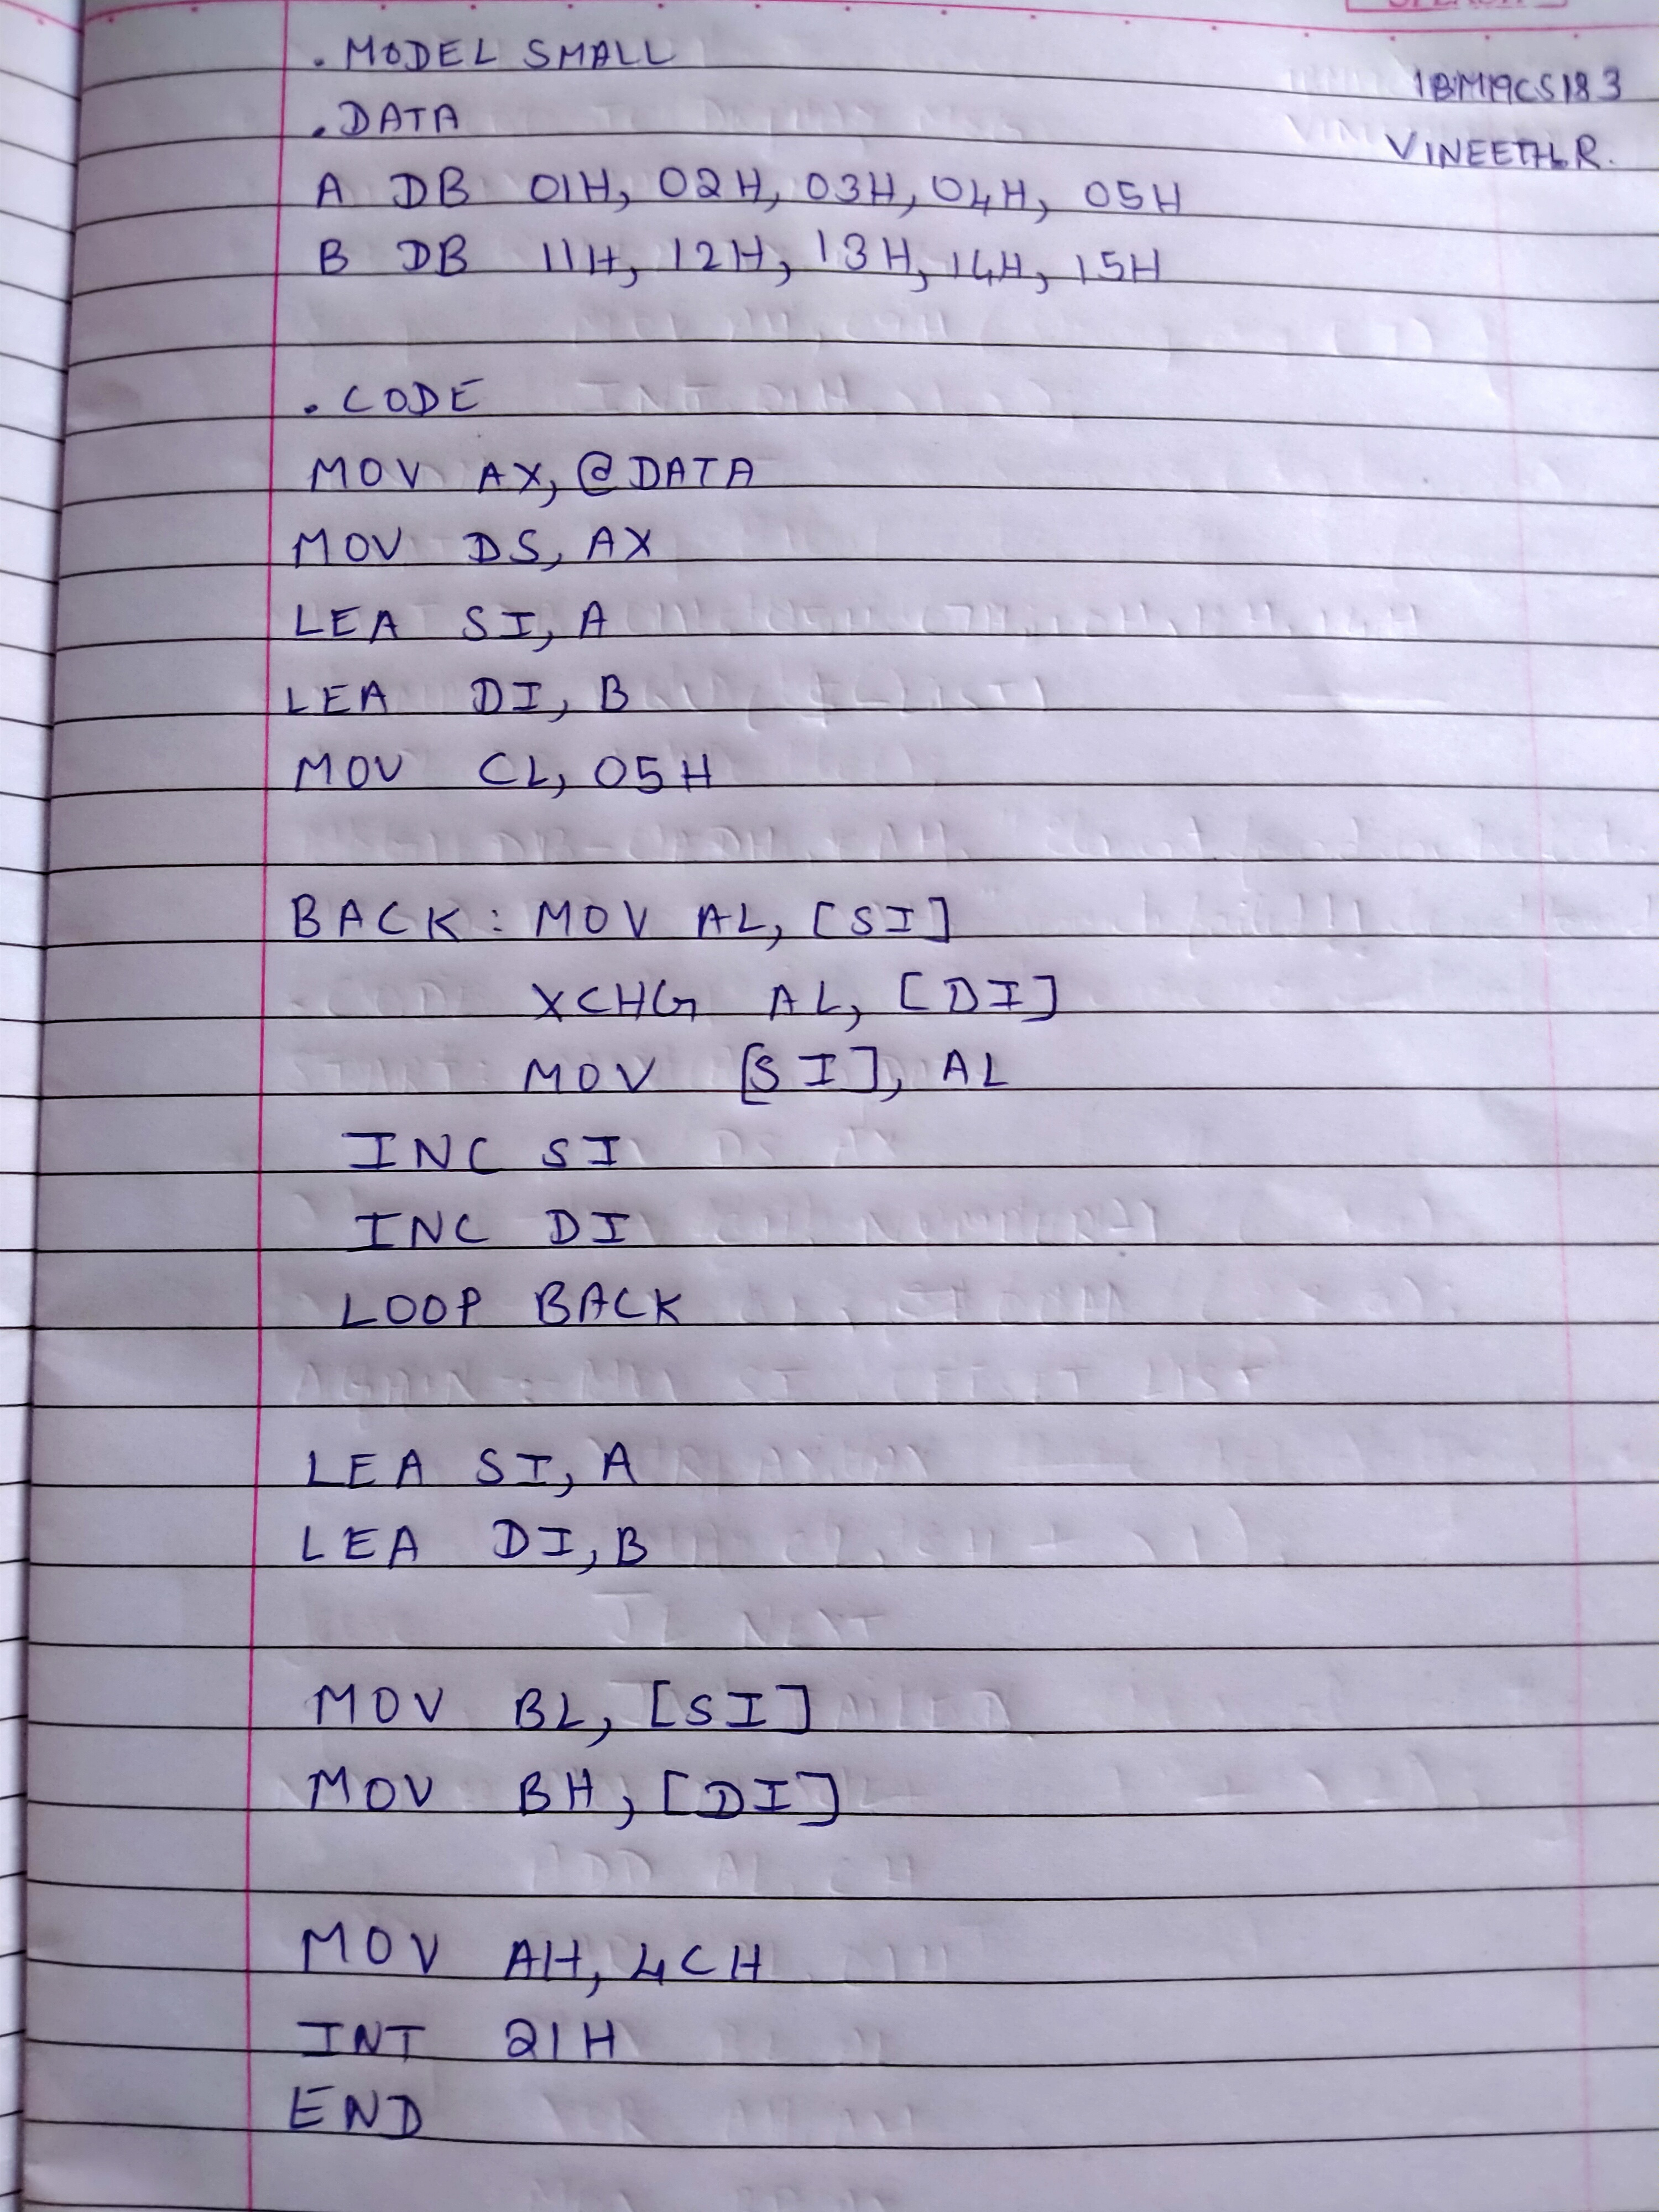 .MODEL SMALL
1BM19CS183
.DATA
VINEETH.R.
A DB 01H, 02H, 03H, 04H, 05H
B DB 11H, 12H, 13H, 14H, 15H
.CODE
MOV AX, @DATA
MOV DS, AX
LEA SI, A
LEA DI, B
MOV CL, 05H
BACK: MOV AL, [SI]
XCHG AL, [DI]
MOV [SI], AL
INC SI
INC DI
LOOP BACK
LEA SI, A
LEA DI, B
MOV BL, [SI]
MOV BH, [DI]
MOV AH, 4CH
INT 21H
END